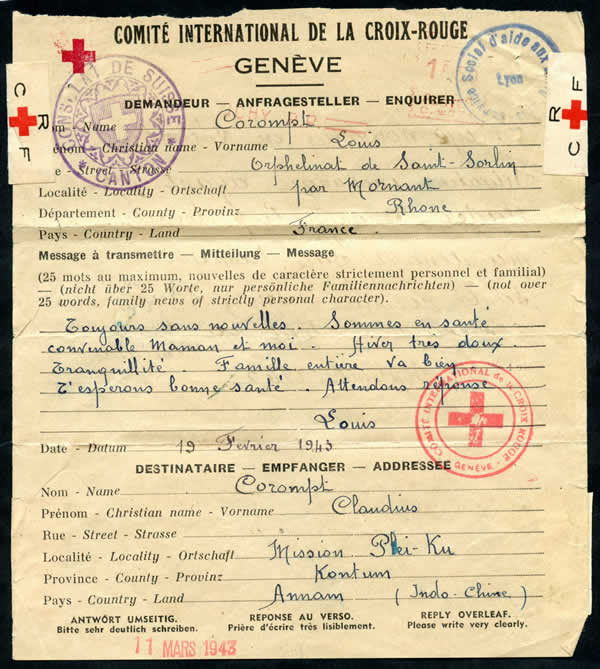 COMITÉ INTERNATIONAL DE LA CROIX-ROUGE
GENÈVE
CONS. INT DE SUISSE
* CANTON *
Service Social d'aide aux
Lyon
C R F
C R F
DEMANDEUR — ANFRAGESTELLER — ENQUIRER
Nom - Name Corompt
Prénom - Christian name - Vorname Louis
e - Street - Strasse Orphelinat de Saint-Sorlin
Localité - Locality - Ortschaft par Mornant
Département - County - Provinz Rhone
Pays - Country - Land France.
Message à transmettre — Mitteilung — Message
(25 mots au maximum, nouvelles de caractère strictement personnel et familial)
— (nicht über 25 Worte, nur persönliche Familiennachrichten) — (not over
25 words, family news of strictly personal character).
Toujours sans nouvelles. Sommes en santé
convenable Maman et moi. Hiver très doux.
Tranquillité. Famille entière va bien
T'esperons bonne santé. Attendons réponse
Louis
COMITÉ INTERNATIONAL de la CROIX ROUGE
- GENÈVE -
Date - Datum 19 Fevrier 1943
DESTINATAIRE — EMPFANGER — ADDRESSEE
Nom - Name Corompt
Prénom - Christian name - Vorname Claudius
Rue - Street - Strasse
Localité - Locality - Ortschaft Mission Plei-Ku
Province - County - Provinz Kontum
Pays - Country - Land Annam (Indo-Chine)
ANTWORT UMSEITIG. REPONSE AU VERSO. REPLY OVERLEAF.
Bitte sehr deutlich schreiben. Prière d'écrire très lisiblement. Please write very clearly.
11 MARS 1943